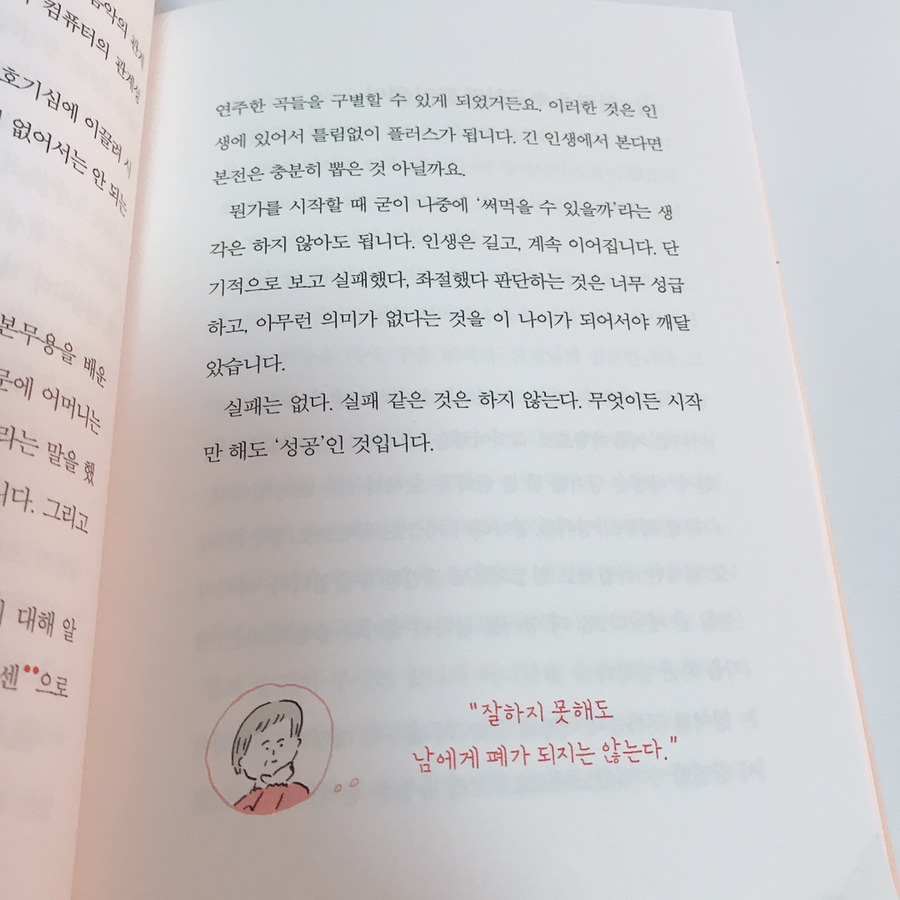 음악의 관계
컴퓨터의 관계성
호기심에 이끌려 시
없어서는 안 되는
본무용을 배운
문에 어머니는
라는 말을 했
니다. 그리고
대해 알
센●●으로
연주한 곡들을 구별할 수 있게 되었거든요. 이러한 것은 인
생에 있어서 틀림없이 플러스가 됩니다. 긴 인생에서 본다면
본전은 충분히 뽑은 것 아닐까요.
뭔가를 시작할 때 굳이 나중에 ‘써먹을 수 있을까’라는 생
각은 하지 않아도 됩니다. 인생은 길고, 계속 이어집니다. 단
기적으로 보고 실패했다, 좌절했다 판단하는 것은 너무 성급
하고, 아무런 의미가 없다는 것을 이 나이가 되어서야 깨달
았습니다.
실패는 없다. 실패 같은 것은 하지 않는다. 무엇이든 시작
만 해도 ‘성공’인 것입니다.
"잘하지 못해도
남에게 폐가 되지는 않는다."